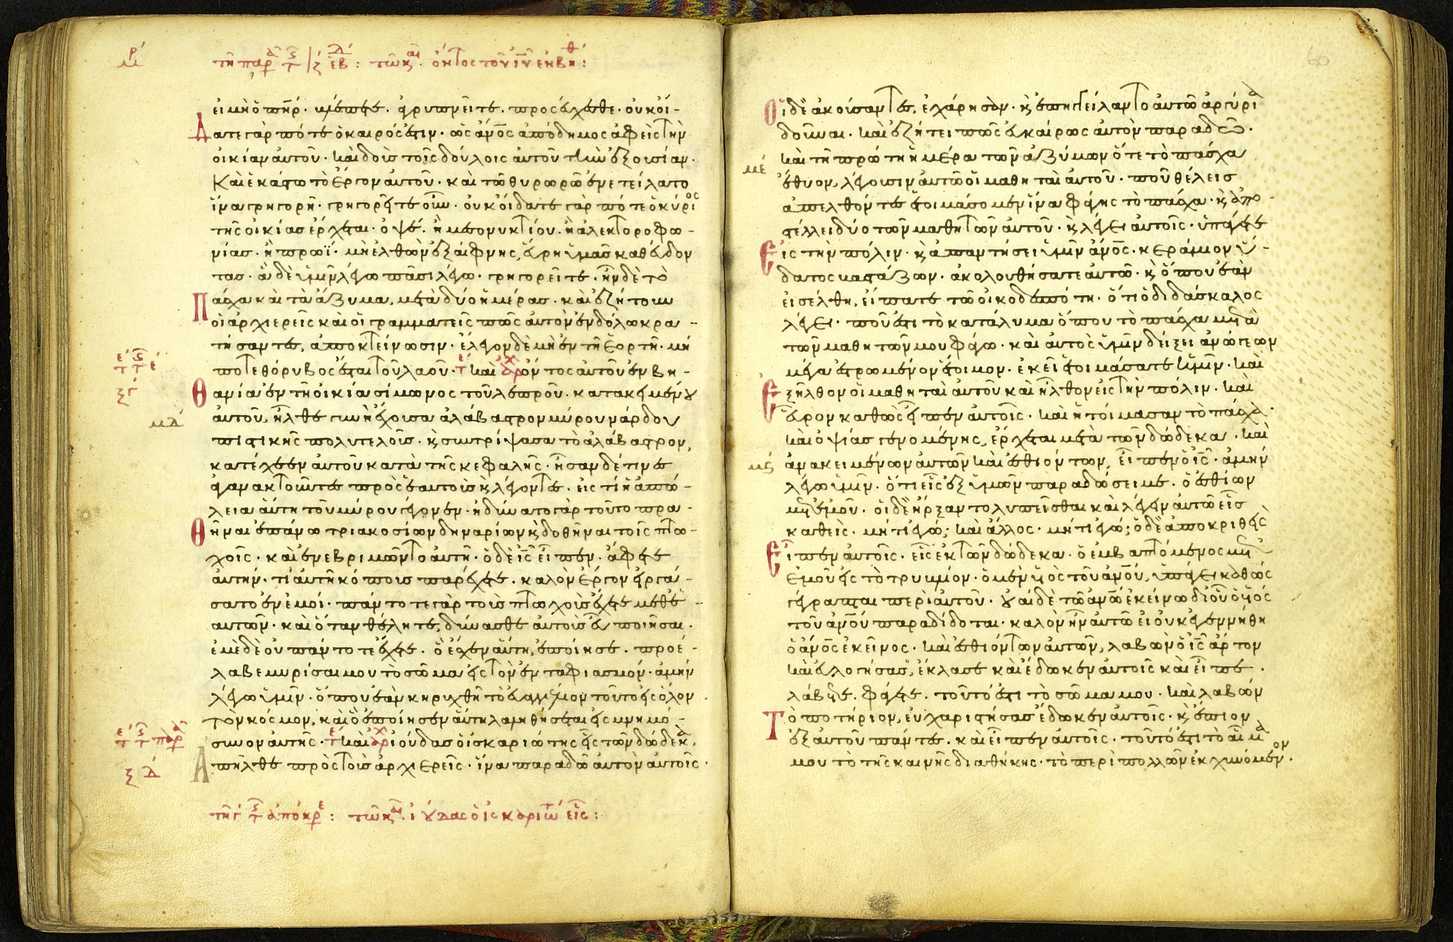 εἰ μὴ ὁ πηρ. βλέπετε. ἀγρυπνεῖτε. προσεύχεσθε. οὐκ οἴ-
δατε γὰρ πότε ὁ καιρός ἐστιν. ὡς ἄνος ἀπόδημος ἀφεὶς τὴν
οἰκίαν αὐτοῦ. καὶ δοὺς τοῖς δούλοις αὐτοῦ τὴν ἐξουσίαν.
Καὶ ἑκάστω τὸ ἔργον αὐτοῦ. καὶ τῶ θυρωρῶ ἐνετείλατο
ἵνα γρηγορῆ. γρηγορεῖτε οὖν. οὐκ οἴδατε γὰρ πότε ὁ κύριος
τῆς οἰκίας ἔρχεται. ὀψὲ. ἢ μεσονυκτίου. ἢ ἀλεκτοροφω-
νίας. ἢ πρωΐ. μὴ ἐλθὼν ἐξαίφνης, εὕρη ὑμᾶς καθεύδον
τας. ἃ δὲ ὑμῖν λέγω πᾶσι λέγω. γρηγορεῖτε. ἦν δὲ τὸ
πάσχα καὶ τὰ ἄζυμα, μετὰ δύο ἡμέρας. καὶ ἐζήτουν
οἱ ἀρχιερεῖς καὶ οἱ γραμματεῖς πῶς αὐτὸν ἐν δόλω κρα-
τήσαντες, ἀποκτείνωσιν. ἔλεγον δὲ μὴ ἐν τῆ ἑορτῆ. μή
ποτε θόρυβος ἔσται τοῦ λαοῦ. καὶ ὄντος αὐτοῦ ἐν βη-
θανία ἐν τῆ οἰκία σίμωνος τοῦ λεπροῦ. κατακειμένου
αὐτοῦ, ἦλθε γυνὴ ἔχουσα ἀλάβαστρον μύρου νάρδου
πιστικῆς πολυτελοῦς. κ συντρίψασα τὸ ἀλάβαστρον,
κατέχεεν αὐτοῦ κατὰ τῆς κεφαλῆς. ἦσαν δέ τινες
ἀγανακτοῦντες πρὸς ἑαυτοὺς κ λέγοντες. εἰς τί ἡ ἀπώ-
λεια αὕτη τοῦ μύρου γέγονεν. ἠδύνατο γὰρ τοῦτο πρα-
θῆναι ἐπάνω τριακοσίων δηναρίων κ δοθῆναι τοῖς πτω
χοῖς. καὶ ἐνεβριμῶντο αὐτῆ. ὁ δὲ ἰς εἶπεν. ἄφετε
αὐτήν. τί αὐτῆ κόπους παρέχετε. καλὸν ἔργον εἰργά-
σατο ἐν ἐμοί. πάντοτε γὰρ τοὺς πτωχοὺς ἔχετε μεθ' ἑ-
αυτῶν. καὶ ὅταν θέλητε, δύνασθε αὐτοὺς εὖ ποιῆσαι.
ἐμὲ δὲ οὐ πάντοτε ἔχετε. ὃ ἔσχεν αὕτη, ἐποίησε. προέ-
λαβε μυρίσαι μου τὸ σῶμα εἰς τὸν ἐνταφιασμόν. ἀμὴν
λέγω ὑμῖν. ὅπου ἐὰν κηρυχθῆ τὸ εὐαγγέλιον τοῦτο εἰς ὅλον
τὸν κόσμον, καὶ ὃ ἐποίησεν αὕτη λαληθήσεται εἰς μνημό-
συνον αὐτῆς. καὶ ἰούδας ὁ ἰσκαριώτης εἷς τῶν δώδεκα,
ἀπῆλθε πρὸς τοὺς ἀρχιερεῖς. ἵνα παραδῶ αὐτὸν αὐτοῖς.
60
Οἱ δὲ ἀκούσαντες, ἐχάρησαν. κ ἐπηγγείλαντο αὐτῶ ἀργύρια
δοῦναι. καὶ ἐζήτει πῶς εὐκαίρως αὐτὸν παραδῶ.
μέ
καὶ τῆ πρώτη ἡμέρα τῶν ἀζύμων ὅτε τὸ πάσχα
ἔθυον, λέγουσιν αὐτῶ οἱ μαθηταὶ αὐτοῦ. ποῦ θέλεις
ἀπελθόντες ἑτοιμάσομεν ἵνα φάγης τὸ πάσχα. κ ἀπο-
στέλλει δύο τῶν μαθητῶν αὐτοῦ. κ λέγει αὐτοῖς. ὑπάγετε
εἰς τὴν πόλιν. κ ἀπαντήσει ὑμῖν ἄνος. κεράμιον ὕ-
δατος βαστάζων. ἀκολουθήσατε αὐτῶ. κ ὅπου ἐὰν
εἰσέλθη, εἴπατε τῶ οἰκοδεσπότη. ὅτι ὁ διδάσκαλος
λέγει. ποῦ ἐστι τὸ κατάλυμα ὅπου τὸ πάσχα μετὰ
τῶν μαθητῶν μου φάγω. καὶ αὐτὸς ὑμῖν δείξει ἀνώγεων
μέγα ἐστρωμένον ἕτοιμον. ἐκεῖ ἑτοιμάσατε ἡμῖν. καὶ
ἐξῆλθον οἱ μαθηταὶ αὐτοῦ καὶ ἦλθον εἰς τὴν πόλιν. καὶ
εὗρον καθὼς εἶπεν αὐτοῖς. καὶ ἡτοίμασαν τὸ πάσχα.
καὶ ὀψίας γενομένης, ἔρχεται μετὰ τῶν δώδεκα. καὶ
ἀνακειμένων αὐτῶν καὶ ἐσθιόντων, εἶπεν ὁ ἰς. ἀμὴν
λέγω ὑμῖν. ὅτι εἷς ἐξ ὑμῶν παραδώσει με. ὁ ἐσθίων
μετ' ἐμοῦ. οἱ δὲ ἤρξαντο λυπεῖσθαι καὶ λέγειν αὐτῶ εἷς
καθεῖς. μήτι ἐγώ; καὶ ἄλλος. μήτι ἐγώ; ὁ δὲ ἀποκριθεὶς
εἶπεν αὐτοῖς. εἷς ἐκ τῶν δώδεκα. ὁ ἐμβαπτόμενος μετ'
ἐμοῦ εἰς τὸ τρυβλίον. ὁ μὲν υἱὸς τοῦ ἀνου, ὑπάγει καθὼς
γέγραπται περὶ αὐτοῦ. οὐαὶ δὲ τῶ ἀνω ἐκείνω δι' οὗ ὁ υἱὸς
τοῦ ἀνου παραδίδοται. καλὸν ἦν αὐτῶ εἰ οὐκ ἐγεννήθη
ὁ ἄνος ἐκεῖνος. καὶ ἐσθιόντων αὐτῶν, λαβὼν ὁ ἰς ἄρτον
καὶ εὐλογήσας, ἔκλασε καὶ ἔδωκεν αὐτοῖς καὶ εἶπε.
λάβετε. φάγετε. τοῦτό ἐστι τὸ σῶμα μου. καὶ λαβὼν
Τὸ ποτήριον, εὐχαριστήσας ἔδωκεν αὐτοῖς. κ ἔπιον
ἐξ αὐτοῦ πάντες. καὶ εἶπεν αὐτοῖς. τοῦτό ἐστι τὸ αἷμά
μου τὸ τῆς καινῆς διαθήκης. τὸ περὶ πολλῶν ἐκχυνόμενον.